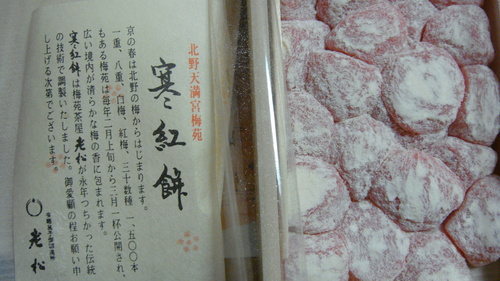 北野天満宮梅苑
寒紅餅
京の春は北野の梅からはじまります。
一重、八重、一門梅、紅梅、三十数種 一、五〇〇本
もある梅苑は毎年二月上旬から三月一杯公開され、
広い境内が清らかな梅の香に包まれます。
寒紅餅は梅苑茶屋老松が永年つちかった伝統
の技術で調製いたしました。御愛顧の程お願い申
し上げる次第でございます。
老松